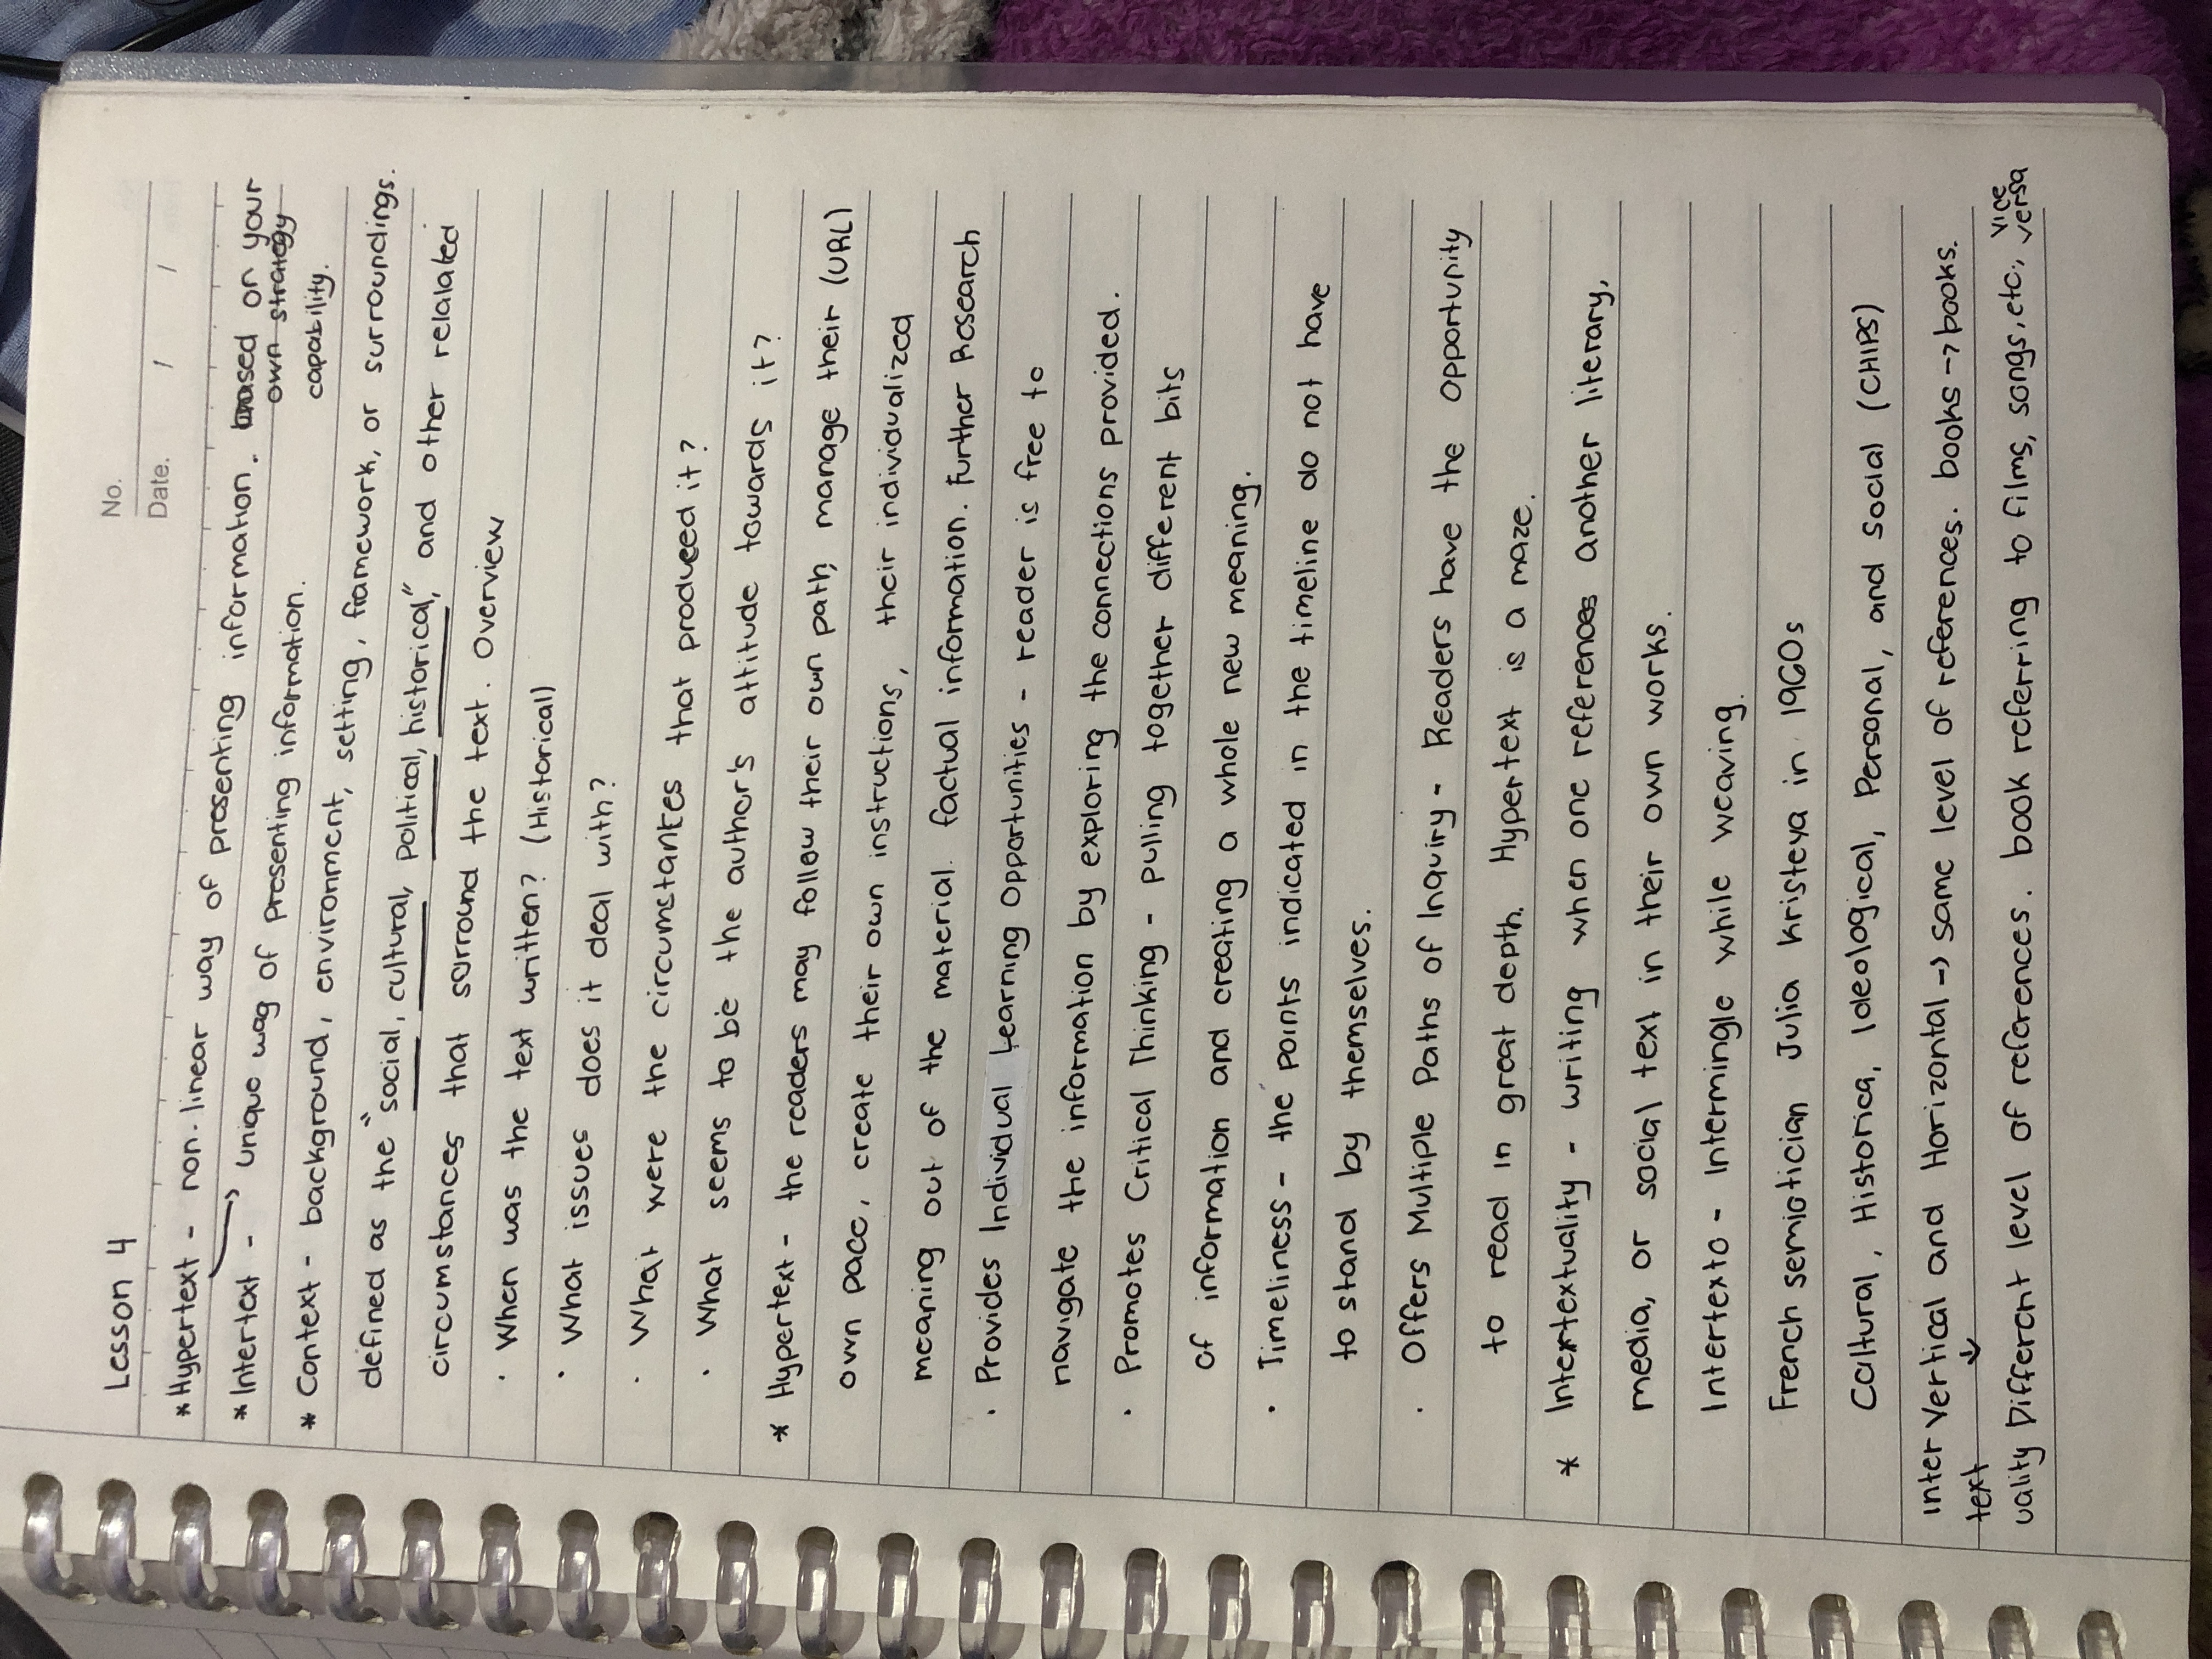 Lesson 4
No.
Date. / /
* Hypertext - non-linear way of presenting information. based on your
own strategy
capability.
* Intertext - unique way of presenting information.
* Context - background, environment, setting, framework, or surroundings.
defined as the "social, cultural, political, historical," and other relalated
circumstances that sorround the text. Overview
· When was the text written? (Historical)
· What issues does it deal with?
· What were the circumstances that produced it?
· What seems to be the author's attitude towards it?
* Hypertext - the readers may follow their own path, manage their (URL)
own pace, create their own instructions, their individualized
meaning out of the material. factual information. Further Research
· Provides Individual Learning Opportunities - reader is free to
navigate the information by exploring the connections provided.
· Promotes Critical Thinking - pulling together different bits
of information and creating a whole new meaning.
· Timeliness - the points indicated in the timeline do not have
to stand by themselves.
· Offers Multiple Paths of Inquiry - Readers have the opportunity
to read in great depth. Hypertext is a maze.
* Intertextuality - writing when one references another literary,
media, or social text in their own works.
Intertexto - Intermingle while weaving.
French semiotician Julia Kristeva in 1960s
Cultural, Historica, Ideological, Personal, and Social (CHIPS)
inter Vertical and Horizontal → same level of references. books → books.
text ↓
uality Different level of references. book referring to films, songs, etc., vice versa